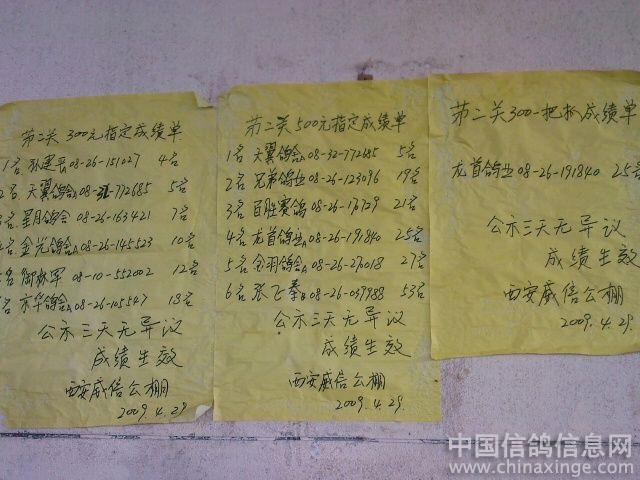 第二关 300元指定成绩单
1名 孙建平 08-26-151027 4名
2名 天翼鸽会 08-32-772685 5名
3名 星月鸽会 08-26-163421 7名
名 金光鸽会 08-26-145523 10名
名 御林军 08-10-552002 12名
名 京华鸽会 08-26-105547 18名
公示三天无异议
成绩生效
西安威信公棚
2009.4.29
第二关 500元指定成绩单
1名 天翼鸽会 08-32-772685 5名
2名 兄弟鸽业 08-26-123096 19名
3名 百胜赛鸽 21名
4名 龙首鸽业 08-26-191840 25名
5名 金羽鸽会 08-26-27018 27名
6名 张飞 08-26-057988 53名
公示三天无异议
成绩生效
西安威信公棚
2009.4.29
第二关300一把抓成绩单
龙首鸽业 08-26-191840 25名
公示三天无异议
成绩生效
西安威信公棚
2009.4.29
中国信鸽信息网
www.chinaxinge.com